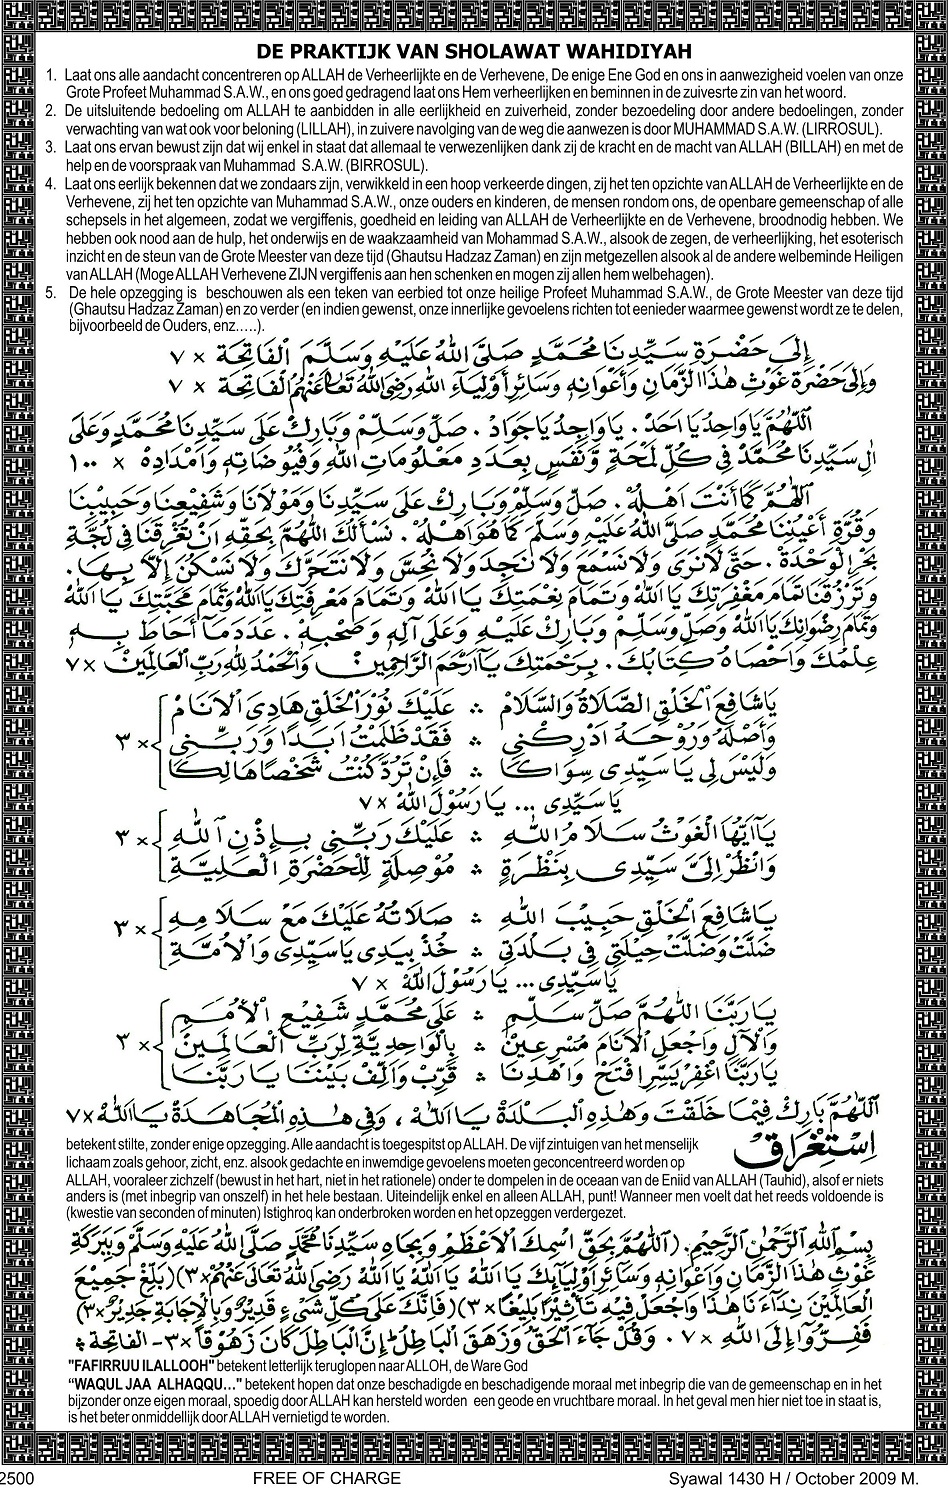 DE PRAKTIJK VAN SHOLAWAT WAHIDIYAH
1. Laat ons alle aandacht concentreren op ALLAH de Verheerlijkte en de Verhevene, De enige Ene God en ons in aanwezigheid voelen van onze
Grote Profeet Muhammad S.A.W., en ons goed gedragend laat ons Hem verheerlijken en beminnen in de zuiverste zin van het woord.
2. De uitsluitende bedoeling om ALLAH te aanbidden in alle eerlijkheid en zuiverheid, zonder bezoedeling door andere bedoelingen, zonder
verwachting van wat ook voor beloning (LILLAH), in zuivere navolging van de weg die aanwezen is door MUHAMMAD S.A.W. (LIRROSUL).
3. Laat ons ervan bewust zijn dat wij enkel in staat dat allemaal te verwezenlijken dank zij de kracht en de macht van ALLAH (BILLAH) en met de
help en de voorspraak van Muhammad S.A.W. (BIRROSUL).
4. Laat ons eerlijk bekennen dat we zondaars zijn, verwikkeld in een hoop verkeerde dingen, zij het ten opzichte van ALLAH de Verheerlijkte en de
Verhevene, zij het ten opzichte van Muhammad S.A.W., onze ouders en kinderen, de mensen rondom ons, de openbare gemeenschap of alle
schepsels in het algemeen, zodat we vergiffenis, goedheid en leiding van ALLAH de Verheerlijkte en de Verhevene, broodnodig hebben. We
hebben ook nood aan de hulp, het onderwijs en de waakzaamheid van Mohammad S.A.W., alsook de zegen, de verheerlijking, het esoterisch
inzicht en de steun van de Grote Meester van deze tijd (Ghautsu Hadzaz Zaman) en zijn metgezellen alsook al de andere welbeminde Heiligen
van ALLAH (Moge ALLAH Verhevene ZIJN vergiffenis aan hen schenken en mogen zij allen hem welbehagen).
5. De hele opzegging is beschouwen als een teken van eerbied tot onze heilige Profeet Muhammad S.A.W., de Grote Meester van deze tijd
(Ghautsu Hadzaz Zaman) en zo verder (en indien gewenst, onze innerlijke gevoelens richten tot eenieder waarmee gewenst wordt ze te delen,
bijvoorbeeld de Ouders, enz.....).
إِلَى حَضْرَةِ سَيِّدِنَا مُحَمَّدٍ صَلَّى اللهُ عَلَيْهِ وَسَلَّمَ الْفَاتِحَة × ٧
وَإِلَى حَضْرَةِ غَوْثِ هٰذَا الزَّمَانِ وَأَعْوَانِهِ وَسَائِرِ أَوْلِيَاءِ اللهِ رَضِيَ اللهُ تَعَالَى عَنْهُمُ الْفَاتِحَة × ٧
اَللّٰهُمَّ يَا وَاحِدُ يَا اَحَدُ . يَا وَاجِدُ يَا جَوَادُ . صَلِّ وَسَلِّمْ وَبَارِكْ عَلَى سَيِّدِنَا مُحَمَّدٍ وَعَلَى
اٰلِ سَيِّدِنَا مُحَمَّدٍ فِى كُلِّ لَمْحَةٍ وَنَفَسٍ بِعَدَدِ مَعْلُومَاتِ اللهِ وَفُيُوضَاتِهِ وَاَمْدَادِهْ × ١٠٠
اَللّٰهُمَّ كَمَا أَنْتَ اَهْلُهْ . صَلِّ وَسَلِّمْ وَبَارِكْ عَلَى سَيِّدِنَا وَمَوْلَانَا وَشَفِيْعِنَا وَحَبِيْبِنَا
وَقُرَّةِ أَعْيُنِنَا مُحَمَّدٍ صَلَّى اللهُ عَلَيْهِ وَسَلَّمَ كَمَا هُوَ اَهْلُهْ . نَسْأَلُكَ اللّٰهُمَّ بِحَقِّهِ اَنْ تُغْرِقَنَا فِى لُجَّةِ
بَحْرِ الْوَحْدَةْ . حَتَّى لَا نَرَى وَلَا نَسْمَعَ وَلَا نَجِدَ وَلَا نُحِسَّ وَلَا نَتَحَرَّكَ وَلَا نَسْكُنَ اِلَّا بِهَا .
وَتَرْزُقَنَا تَمَامَ مَغْفِرَتِكَ يَا اَللهُ وَتَمَامَ نِعْمَتِكَ يَا اَللهُ وَتَمَامَ مَعْرِفَتِكَ يَا اَللهُ وَتَمَامَ مَحَبَّتِكَ يَا اَللهُ
وَتَمَامَ رِضْوَانِكَ يَا اَللهُ وَصَلِّ وَسَلِّمْ وَبَارِكْ عَلَيْهِ وَعَلَى آلِهِ وَصَحْبِهْ . عَدَدَ مَا أَحَاطَ بِهِ
عِلْمُكَ وَاَحْصَاهُ كِتَابُكَ . بِرَحْمَتِكَ يَا اَرْحَمَ الرَّاحِمِيْنَ وَالْحَمْدُ لِلّٰهِ رَبِّ الْعَالَمِيْنَ × ٧
يَا شَافِعَ الْخَلْقِ الصَّلَاةُ وَالسَّلَامْ ∴ عَلَيْكَ نُوْرَ الْخَلْقِ هَادِيَ الْاَنَامْ
وَأَصْلَهُ وَرُوْحَهُ اَدْرِكْنِى ∴ فَقَدْ ظَلَمْتُ اَبَدًا وَرَبِّنِى × ٣
وَلَيْسَ لِى يَا سَيِّدِى سِوَاكَا ∴ فَإِنْ تَرُدَّ كُنْتُ شَخْصًا هَالِكَا
يَا سَيِّدِى ... يَا رَسُوْلَ اللهْ × ٧
يَا اَيُّهَا الْغَوْثُ سَلَامُ اللهِ ∴ عَلَيْكَ رَبِّنِى بِإِذْنِ اللهِ × ٣
وَانْظُرْ إِلَىَّ سَيِّدِى بِنَظْرَةِ ∴ مُوْصِلَةٍ لِلْحَضْرَةِ الْعَلِيَّةِ
يَا شَافِعَ الْخَلْقِ حَبِيْبَ اللهِ ∴ صَلَاتُهُ عَلَيْكَ مَعْ سَلَامِهِ × ٣
ضَلَّتْ وَضَلَّتْ حِيْلَتِى فِى بَلْدَتِى ∴ خُذْ بِيَدِى يَا سَيِّدِى وَالْاُمَّةِ
يَا سَيِّدِى ... يَا رَسُوْلَ اللهْ × ٧
يَا رَبَّنَا اللّٰهُمَّ صَلِّ سَلِّمِ ∴ عَلَى مُحَمَّدٍ شَفِيْعِ الْاُمَمِ
وَالْآلِ وَاجْعَلِ الْاَنَامَ مُسْرِعِيْنَ ∴ بِالْوَاحِدِيَّةِ لِرَبِّ الْعَالَمِيْنَ × ٣
يَا رَبَّنَا اغْفِرْ يَسِّرْ افْتَحْ وَاهْدِنَا ∴ قَرِّبْ وَأَلِّفْ بَيْنَنَا يَا رَبَّنَا
اَللّٰهُمَّ بَارِكْ فِيْمَا خَلَقْتَ وَهٰذِهِ الْبَلْدَةْ يَا اَللهْ ، وَفِى هٰذِهِ الْمُجَاهَدَةْ يَا اَللهْ × ٧
اِسْتِغْرَاقْ
betekent stilte, zonder enige opzegging. Alle aandacht is toegespitst op ALLAH. De vijf zintuigen van het menselijk
lichaam zoals gehoor, zicht, enz. alsook gedachte en inwemdige gevoelens moeten geconcentreerd worden op
ALLAH, vooraleer zichzelf (bewust in het hart, niet in het rationele) onder te dompelen in de oceaan van de Eniid van ALLAH (Tauhid), alsof er niets
anders is (met inbegrip van onszelf) in het hele bestaan. Uiteindelijk enkel en alleen ALLAH, punt! Wanneer men voelt dat het reeds voldoende is
(kwestie van seconden of minuten) Istighroq kan onderbroken worden en het opzeggen verdergezet.
بِسْمِ اللهِ الرَّحْمٰنِ الرَّحِيْمِ . (اَللّٰهُمَّ بِحَقِّ اسْمِكَ الْاَعْظَمِ وَبِجَاهِ سَيِّدِنَا مُحَمَّدٍ صَلَّى اللهُ عَلَيْهِ وَسَلَّمَ وَبِبَرَكَةِ
غَوْثِ هٰذَا الزَّمَانِ وَاَعْوَانِهِ وَسَائِرِ اَوْلِيَائِكَ يَا اَللهُ يَا اَللهُ يَا اَللهُ رَضِيَ اللهُ تَعَالَى عَنْهُمْ × ٣) (بَلِّغْ جَمِيْعَ
الْعَالَمِيْنَ نِدَاءَنَا هٰذَا وَاجْعَلْ فِيْهِ تَأْثِيْرًا بَلِيْغًا × ٣) (فَإِنَّكَ عَلَى كُلِّ شَيْءٍ قَدِيْرٌ وَبِالْإِجَابَةِ جَدِيْرٌ × ٣)
فَفِرُّوْا إِلَى اللهِ × ٧ . وَقُلْ جَاءَ الْحَقُّ وَزَهَقَ الْبَاطِلُ إِنَّ الْبَاطِلَ كَانَ زَهُوْقًا × ٣ - الفاتحة
"FAFIRRUU ILALLOOH" betekent letterlijk teruglopen naar ALLOH, de Ware God
"WAQUL JAA ALHAQQU..." betekent hopen dat onze beschadigde en beschadigende moraal met inbegrip die van de gemeenschap en in het
bijzonder onze eigen moraal, spoedig door ALLAH kan hersteld worden een geode en vruchtbare moraal. In het geval men hier niet toe in staat is,
is het beter onmiddellijk door ALLAH vernietigd te worden.
2500 FREE OF CHARGE Syawal 1430 H / October 2009 M.